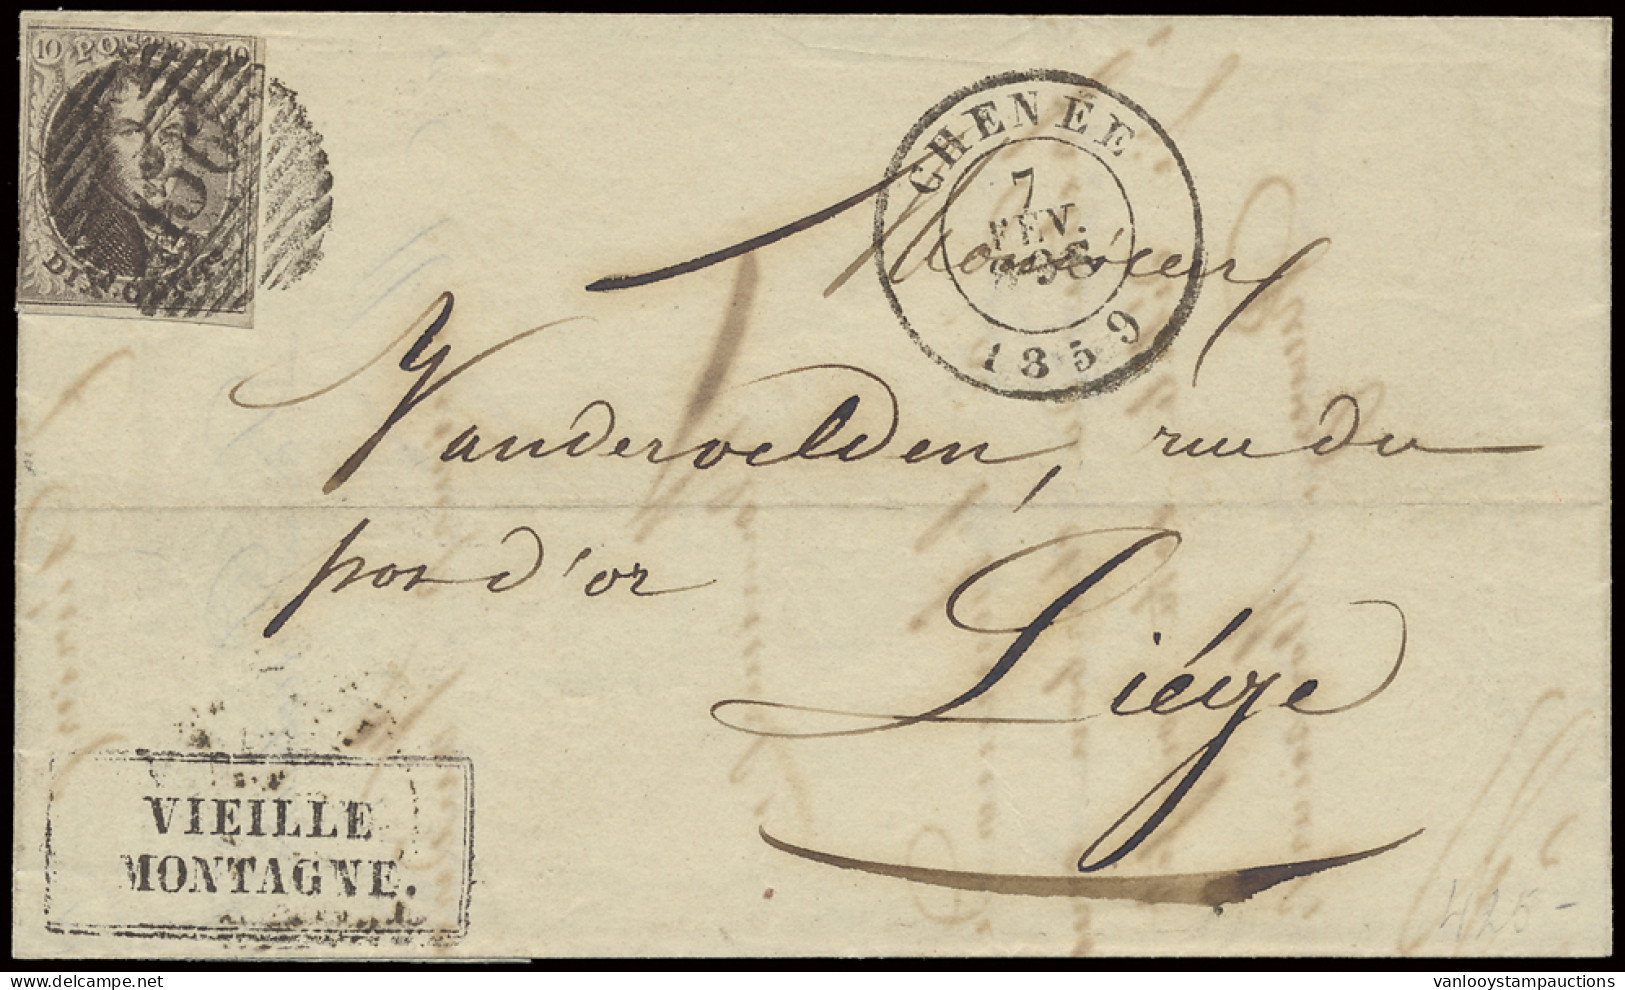 10 POSTES 10
156
DIX CENTS
CHENÉE
7
FEV.
1859
Monsieur
Vandervelden, rue du
pot d'or
Liége
VIEILLE
MONTAGNE.
425-
vanlooystampauctions